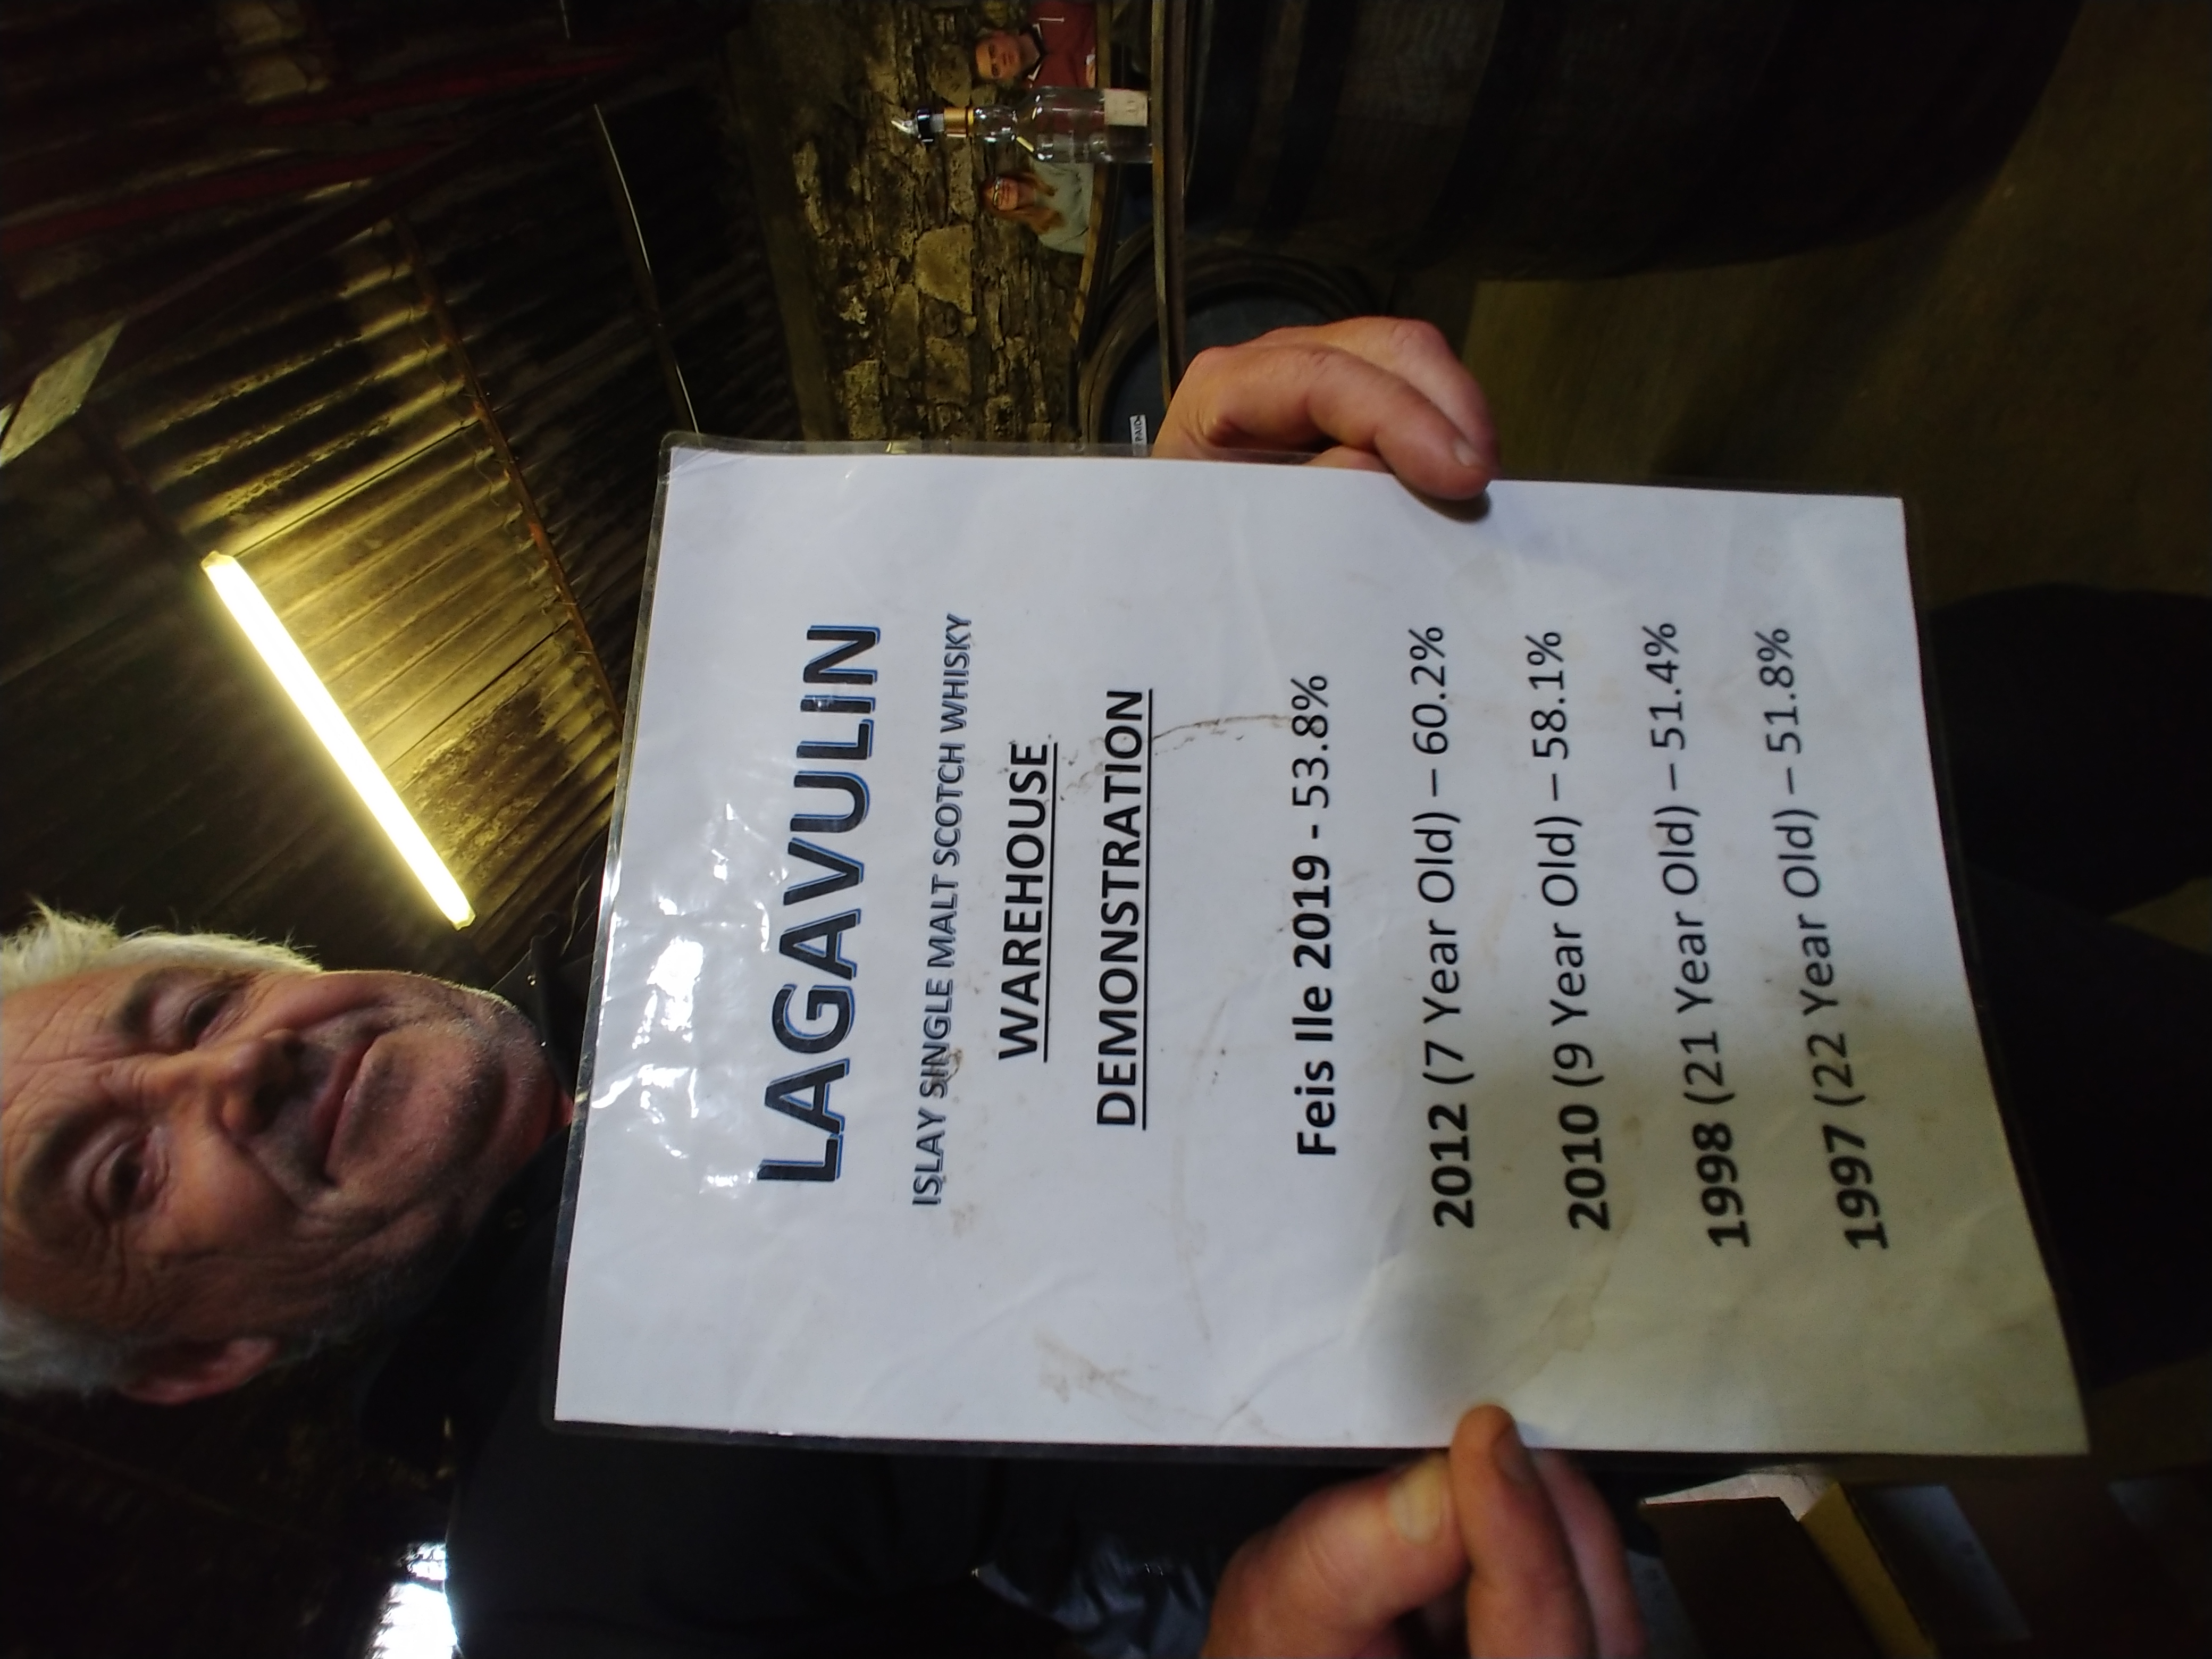 LAGAVULIN
ISLAY SINGLE MALT SCOTCH WHISKY
WAREHOUSE
DEMONSTRATION
Feis Ile 2019 - 53.8%
2012 (7 Year Old) – 60.2%
2010 (9 Year Old) – 58.1%
1998 (21 Year Old) – 51.4%
1997 (22 Year Old) – 51.8%
PAID